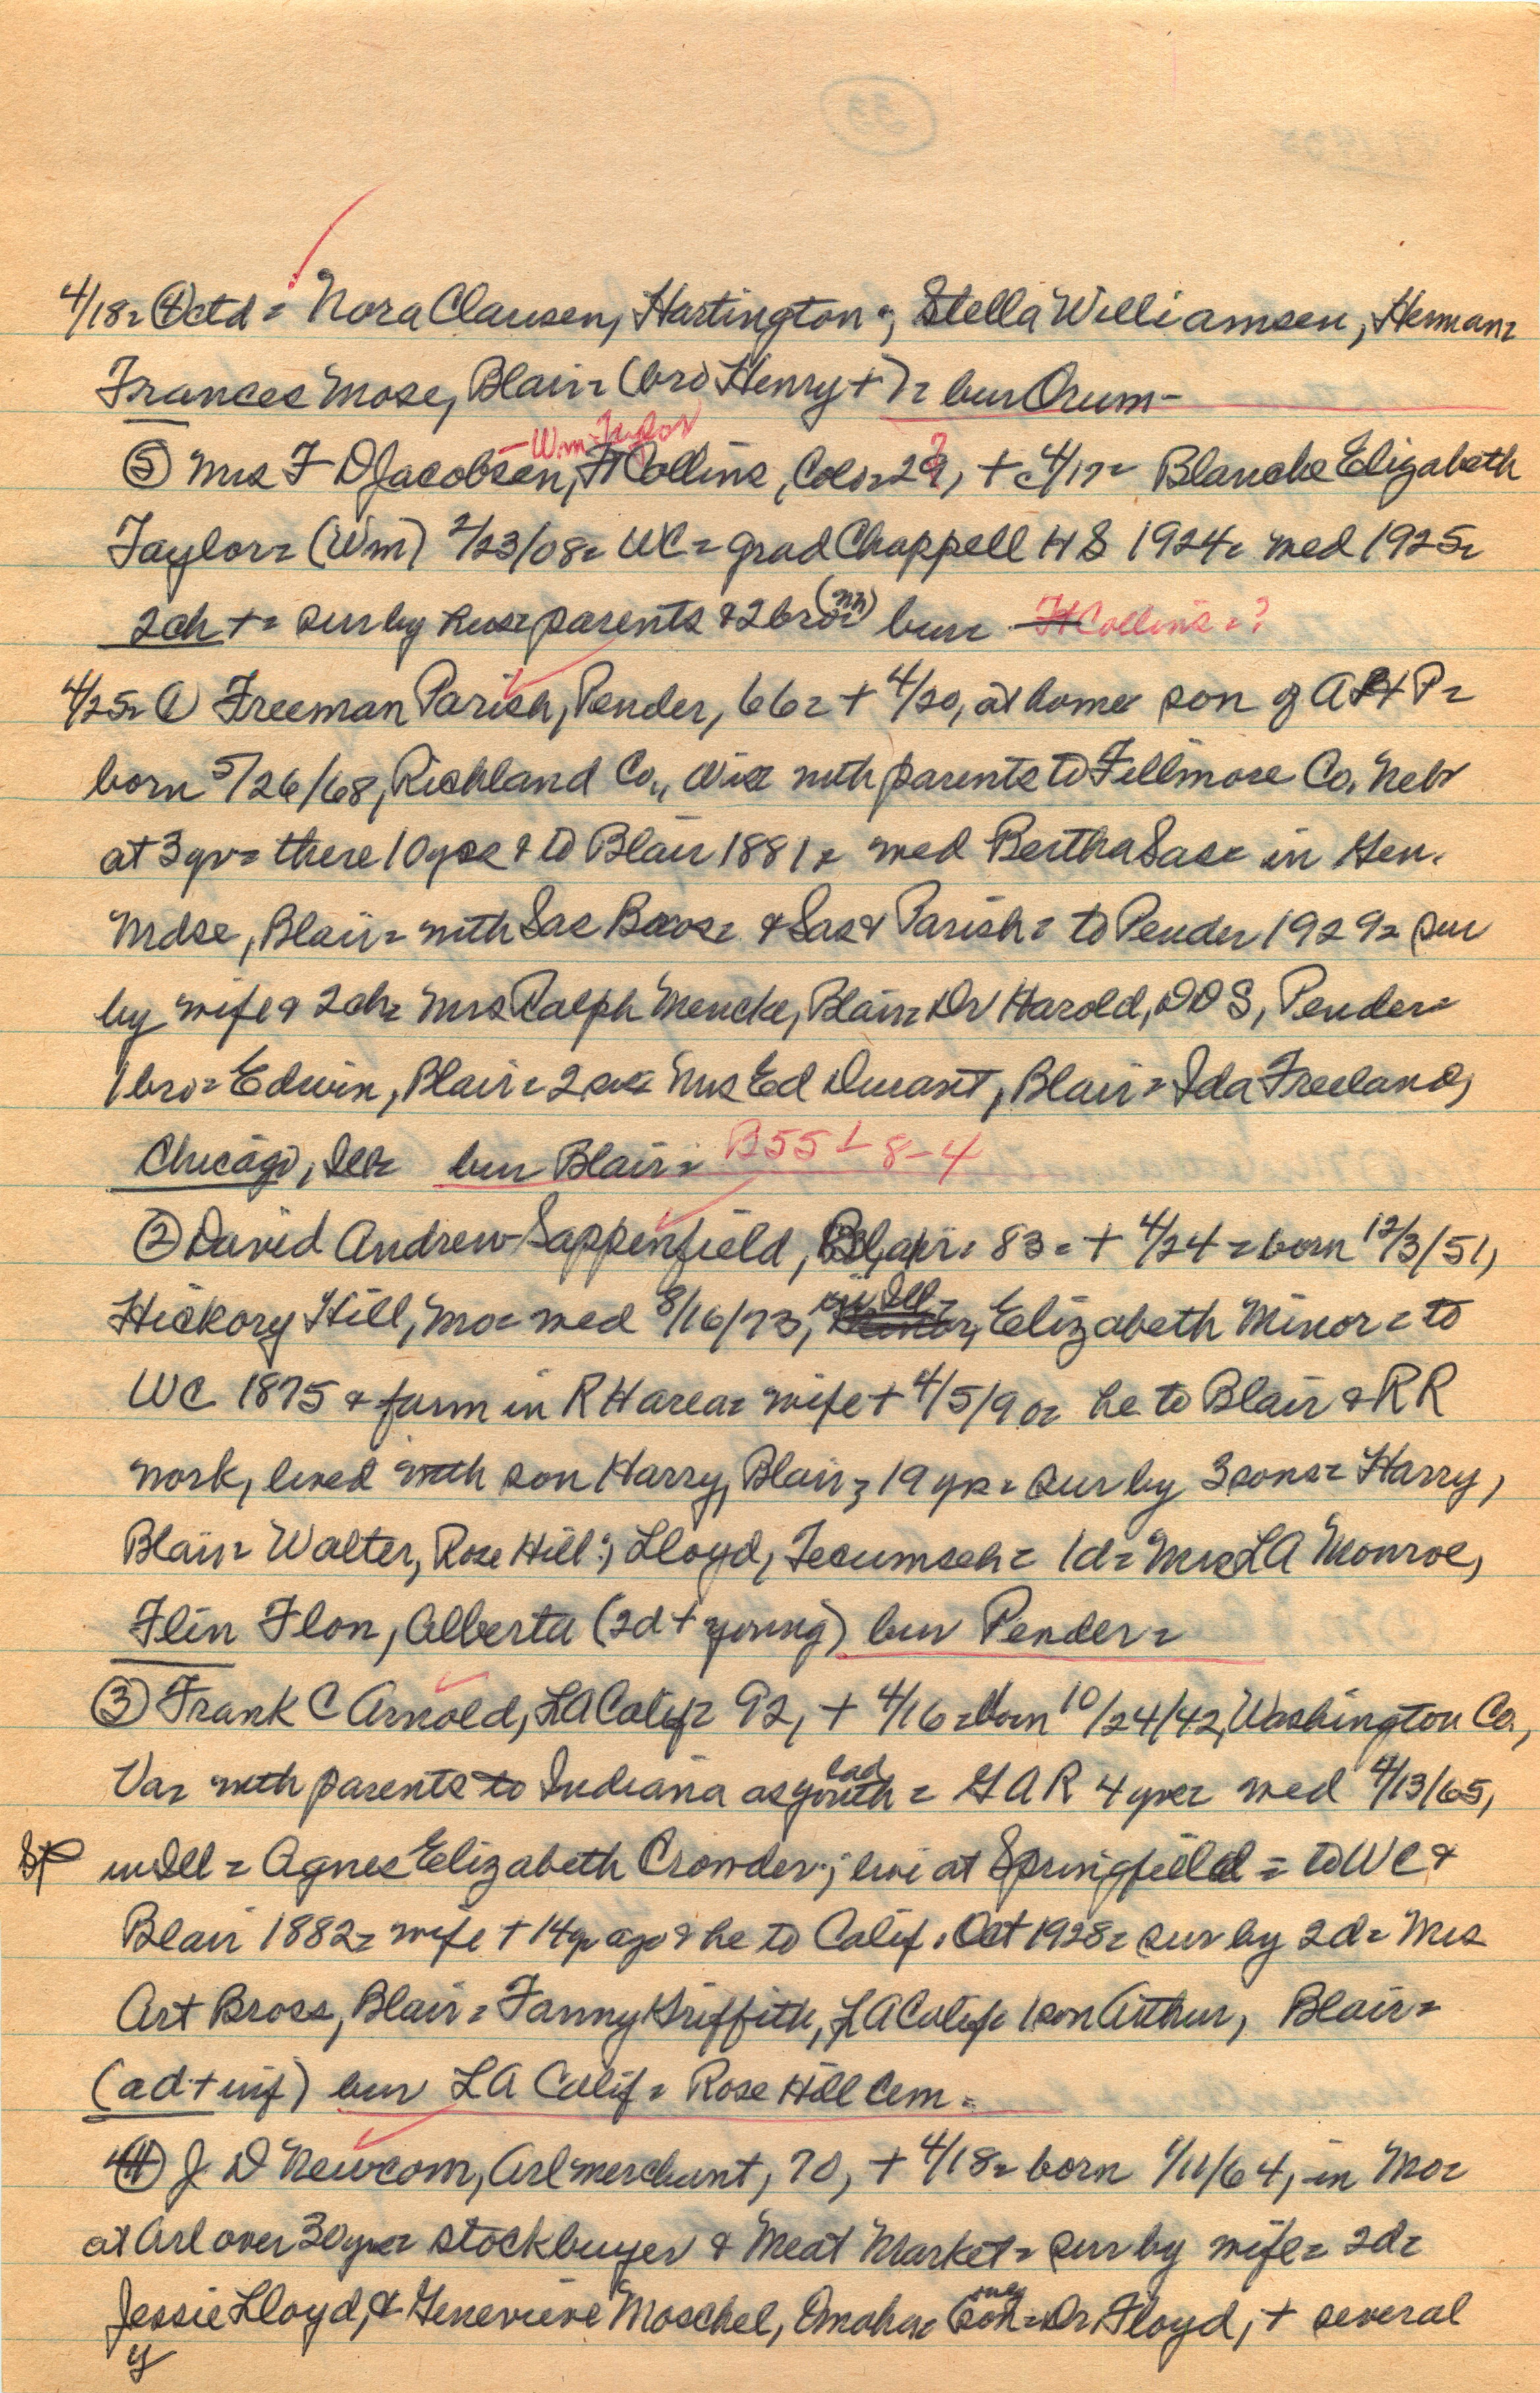 4/18= ④ctd= Nora Clausen, Hartington; Stella Williamsen, Herman=
Frances Mose, Blair= (bro Henry +)= bur Orum-
- Wm Taylor
⑤ Mrs F D Jacobsen, Ft Collins, Colo= 29, + 4/17= Blanche Elizabeth
Taylor= (Wm) 2/23/08= WC= grad Chappell HS 1924= med 1925=
2ch += sur by hus= parents & 2 bro= (nn) bur= Ft Collins=?
4/25= ① Freeman Parish, Pender, 66= + 4/20, at home son of A P=
born 5/26/68, Richland Co., Wis= with parents to Fillmore Co. Nebr
at 3 yr= there 10 yrs & to Blair 1881= med Bertha Sas= in Gen.
Mdse, Blair= with Sas Bros= & Sas & Parish= to Pender 1929= sur
by wife & 2ch= Mrs Ralph Mencke, Blair= Dr Harold, DDS, Pender=
1 bro= Edwin, Blair= 2 sis= Mrs Ed Durant, Blair= Ida Freeland,
Chicago, Ill= bur Blair= B55 L 8-4
② David Andrew Sappenfield, Blair= 83= + 4/24= born 12/3/51,
Hickory Hill, Mo= med 8/16/73, in Ill= Elizabeth Minor= to
WC 1875 & farm in R H area= wife + 4/5/90= he to Blair & RR
work, lived with son Harry, Blair, 19 yrs= sur by 3 sons= Harry,
Blair= Walter, Rose Hill; Lloyd, Tecumseh= 1d= Mrs LA Monroe,
Flin Flon, Alberta (2d + young) bur Pender=
③ Frank C Arnold, LA Calif= 92, + 4/16= born 10/24/42, Washington Co,
Va= with parents to Indiana as youth lad= GAR 4 yrs= med 4/13/65,
in Ill= Agnes Elizabeth Crowder; live at Springfield= to WC &
Blair 1882= wife + 14 yr ago & he to Calif. Oct 1928= sur by 2d= Mrs
Art Bross, Blair= Fanny Griffith, LA Calif= 1 son Arthur, Blair=
(ad + inf) bur LA Calif= Rose Hill Cem=
④ J D Newcom, Arl merchant, 70, + 4/18= born 1/11/64, in Mo=
at Arl over 30 yrs= stockbuyer & Meat Market= sur by wife= 2d=
Jessie Lloyd, & Genevieve Moschel, Omaha= son= Dr Floyd, + several
y